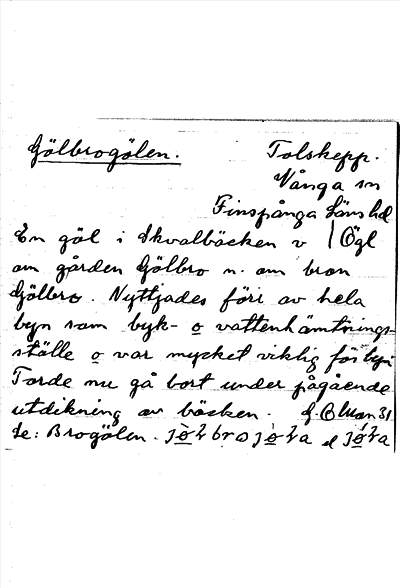 Gölbrogölen.
Tolskepp.
Vånga sn
Finspånga Läns hd
En göl i Skvalbäcken v | Ögl
om gården Gölbro n. om bron
Gölbro. Nyttjades förr av hela
byn som byk- o vattenhämtnings-
ställe o var mycket viktig för byn
Torde nu gå bort under pågående
utdikning av bäcken.
Se: Brogölen.